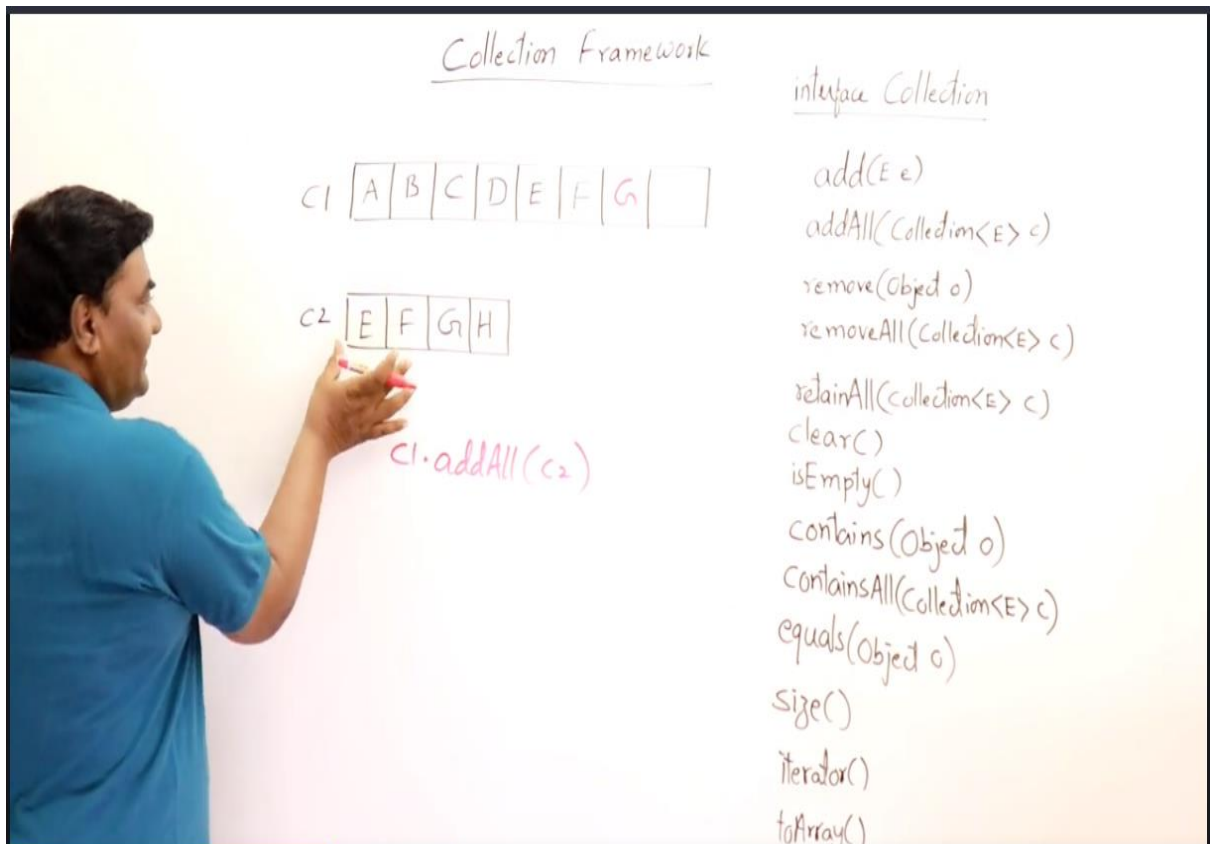 Collection Framework
C1 A B C D E F G
C2 E F G H
C1.addAll(C2)
interface Collection
add(E e)
addAll(Collection<E> c)
remove(Object o)
removeAll(Collection<E> c)
retainAll(Collection<E> c)
clear()
isEmpty()
contains(Object o)
containsAll(Collection<E> c)
equals(Object o)
size()
iterator()
toArray()